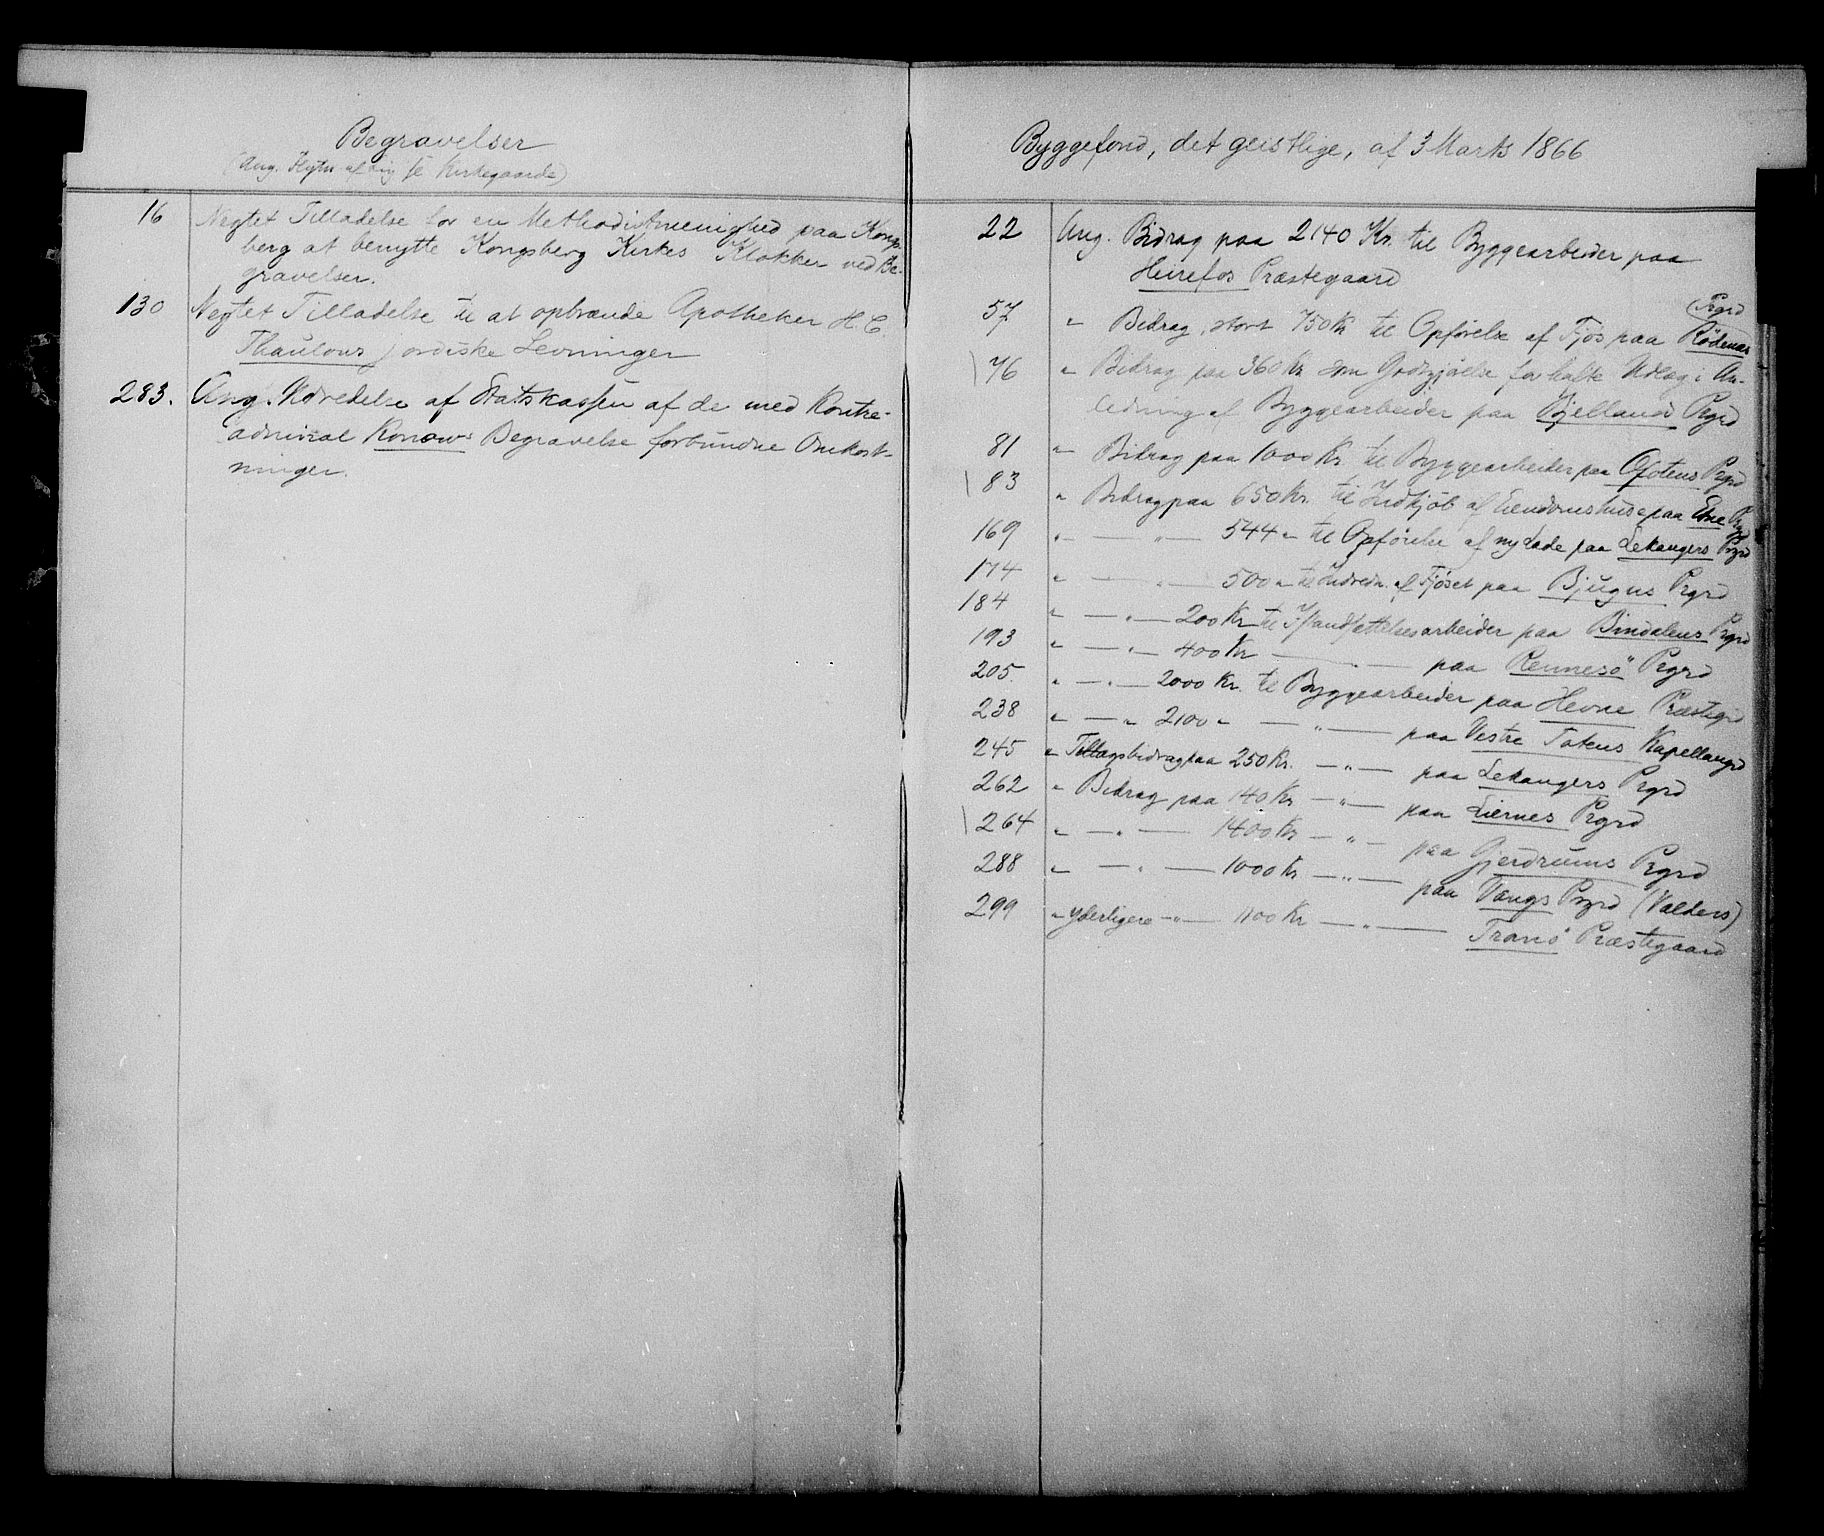 Begravelser
(Ang. Flytn. af Lig se Kirkegaarde)
16 Negtet Tilladelse for en Methodistmenighed paa Kongs-
berg at benytte Kongsberg Kirkes Klokker ved Be-
gravelser.
130 Negtet Tilladelse til at opbrænde Apotheker H. C.
Thaulows jordiske Levninger
283. Ang. Udredelse af Statskassen af de med Kontre-
admiral Konows Begravelse forbundne Omkost-
ninger.
Byggefond, det geistlige, af 3 Marts 1866
22 Ang. Bidrag paa 2140 Kr. til Byggearbeider paa
Præstegaard
Prgrd
57 " Bidrag, stort 750 Kr til Opførelse af Fjøs paa Rødenæs
76 " Bidrag paa 360 Kr som Godtgjørelse for halte Udlæg i An-
ledning af Byggearbeider paa Bjellands Prgrd
81 " Bidrag paa 1000 Kr. til Byggearbeider paa Ofotens Prgrd
83 " Bidrag paa 650 Kr. til Indkjøb af Eiendomshuse paa Etne Prgrd
169 " — " — 544 " til Opførelse af ny Lade paa Lekangers Prgrd
174 " — " — 500 " til Indredn. af Fjøset paa Bjugns Prgrd
184 " — " — 200 Kr til Istandsættelsesarbeider paa Bindalens Prgrd
193 " — " — 400 Kr — " — paa Rennesö Prgrd
205. " — " — 2000 Kr. til Byggearbeider paa Hevne Præstegrd
238 " — " 2100 " — " — paa Vestre Totens Kapellangrd
245 " Tillægsbidrag paa 250 Kr. — " — paa Lekangers Prgrd
262 " Bidrag paa 140 Kr — " — paa Liernes Prgrd
264 " — " — 1400 Kr — " — paa Gjerdrums Prgrd
288 " — " — 1000 Kr — " — paa Vangs Prgrd (Valders)
299 " Yderligere — " — 1100 Kr — " — Tranö Præstegaard